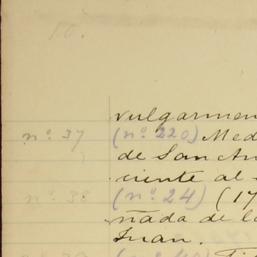 vulgarmen
nº 37 (nº 220) Med
de San An
ciente al
nº 38 (nº 24) (17
ñada de la
Juan.